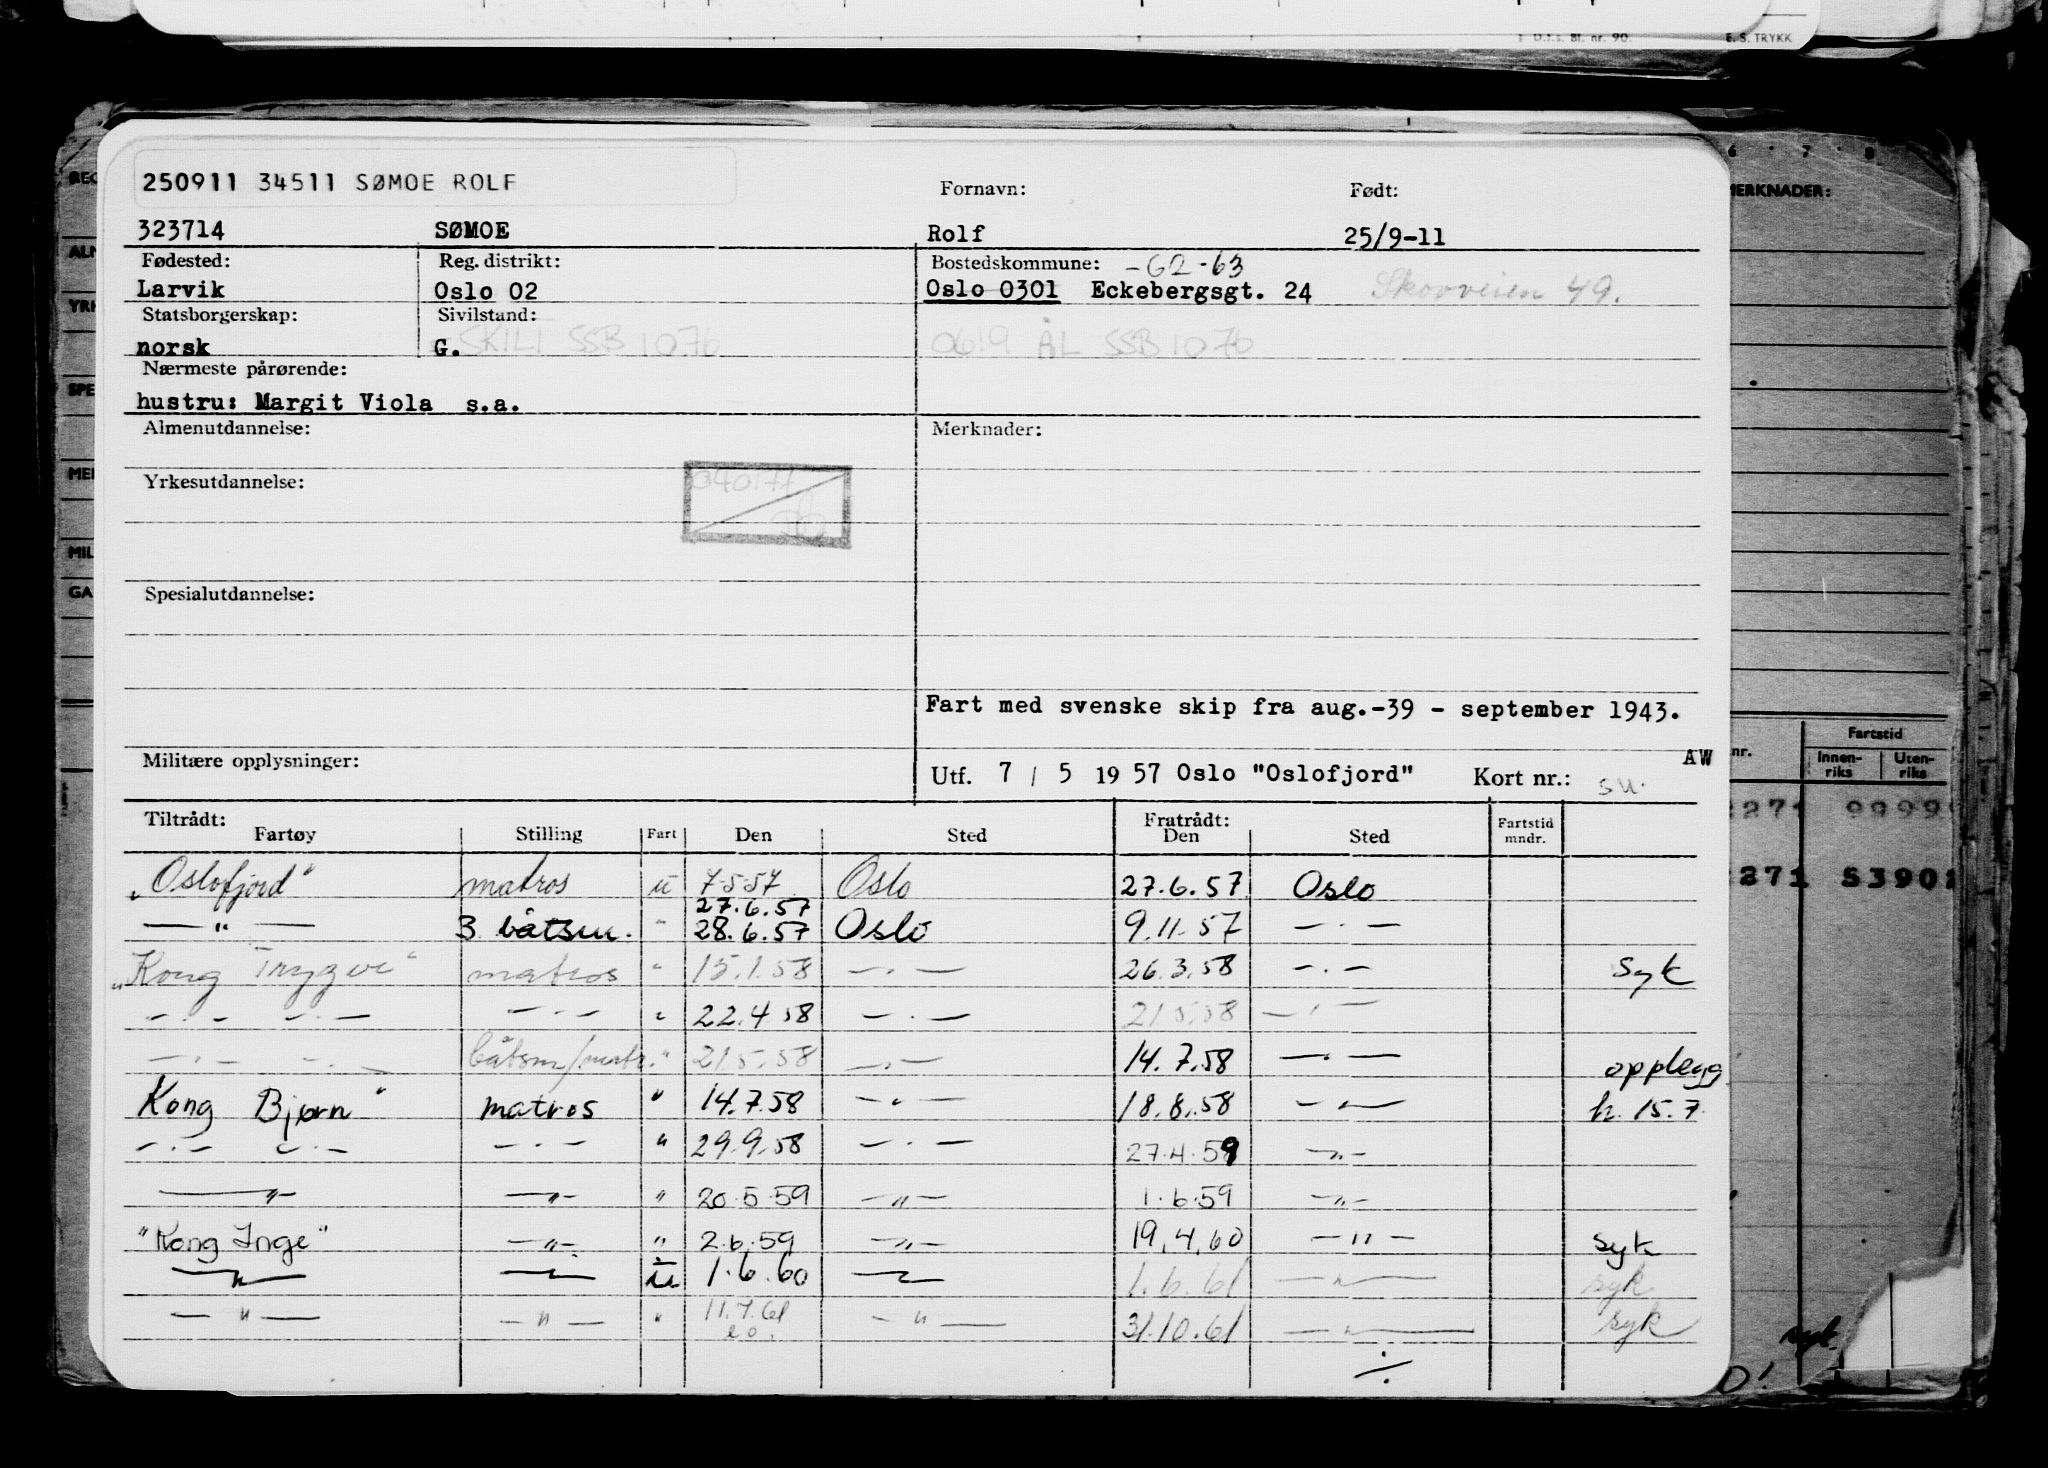 D.f.s. Bl. nr. 90. E. S. TRYKK
250911 34511 SØMOE ROLF
Fornavn: Født:
323714 SØMOE Rolf 25/9-11
Fødested: Reg. distrikt: Bostedskommune: -62-63
Larvik Oslo 02 Oslo 0301 Eckebergsgt. 24 Skovveien 49.
Statsborgerskap: Sivilstand:
norsk G. SKILT SSB 1076 0619 ÅL SSB 1076
Nærmeste pårørende:
hustru: Margit Viola s.a.
Almenutdannelse: Merknader:
Yrkesutdannelse: 040177
Spesialutdannelse:
Fart med svenske skip fra aug.-39 - september 1943.
Militære opplysninger: AW
Utf. 7 / 5 19 57 Oslo "Oslofjord" Kort nr.: su.
Tiltrådt: Fratrådt:
Fartøy Stilling Fart Den Sted Den Sted Fartstid mndr.
"Oslofjord" matros u 7-5-57 Oslo 27.6.57 Oslo
27.6.57
—"— 3 båtsm. " 28.6.57 Oslo 9.11.57 —"—
"Kong Trygve" matros " 15.1.58 —"— 26.3.58 —"— Syk
—"— —"— —"— " 22.4.58 —"— 21.5.58 —"—
—"— —"— båtsm/matr. " 21.5.58 —"— 14.7.58 —"— opplegg
Kong Bjørn" matros " 14.7.58 —"— 18.8.58 —"— h. 15.7
—"— —"— —"— " 29.9.58 —"— 27.4.59 —"—
—"— —"— " 20.5.59 —"— 1.6.59 —"—
"Kong Inge" —"— " 2.6.59 —"— 19.4.60 —"— syk
—"— —"— u 1.6.60 —"— 1.6.61 —"— syk
—"— —"— " 11.7.61 —"— 31.10.61 —"— syk
÷
6 7 8
MERKNADER:
nr. Fartstid
Innenriks Utenriks
2271 9999
2271 S3901
REG
ALM
YRK
SPE
MER
MIL
GA